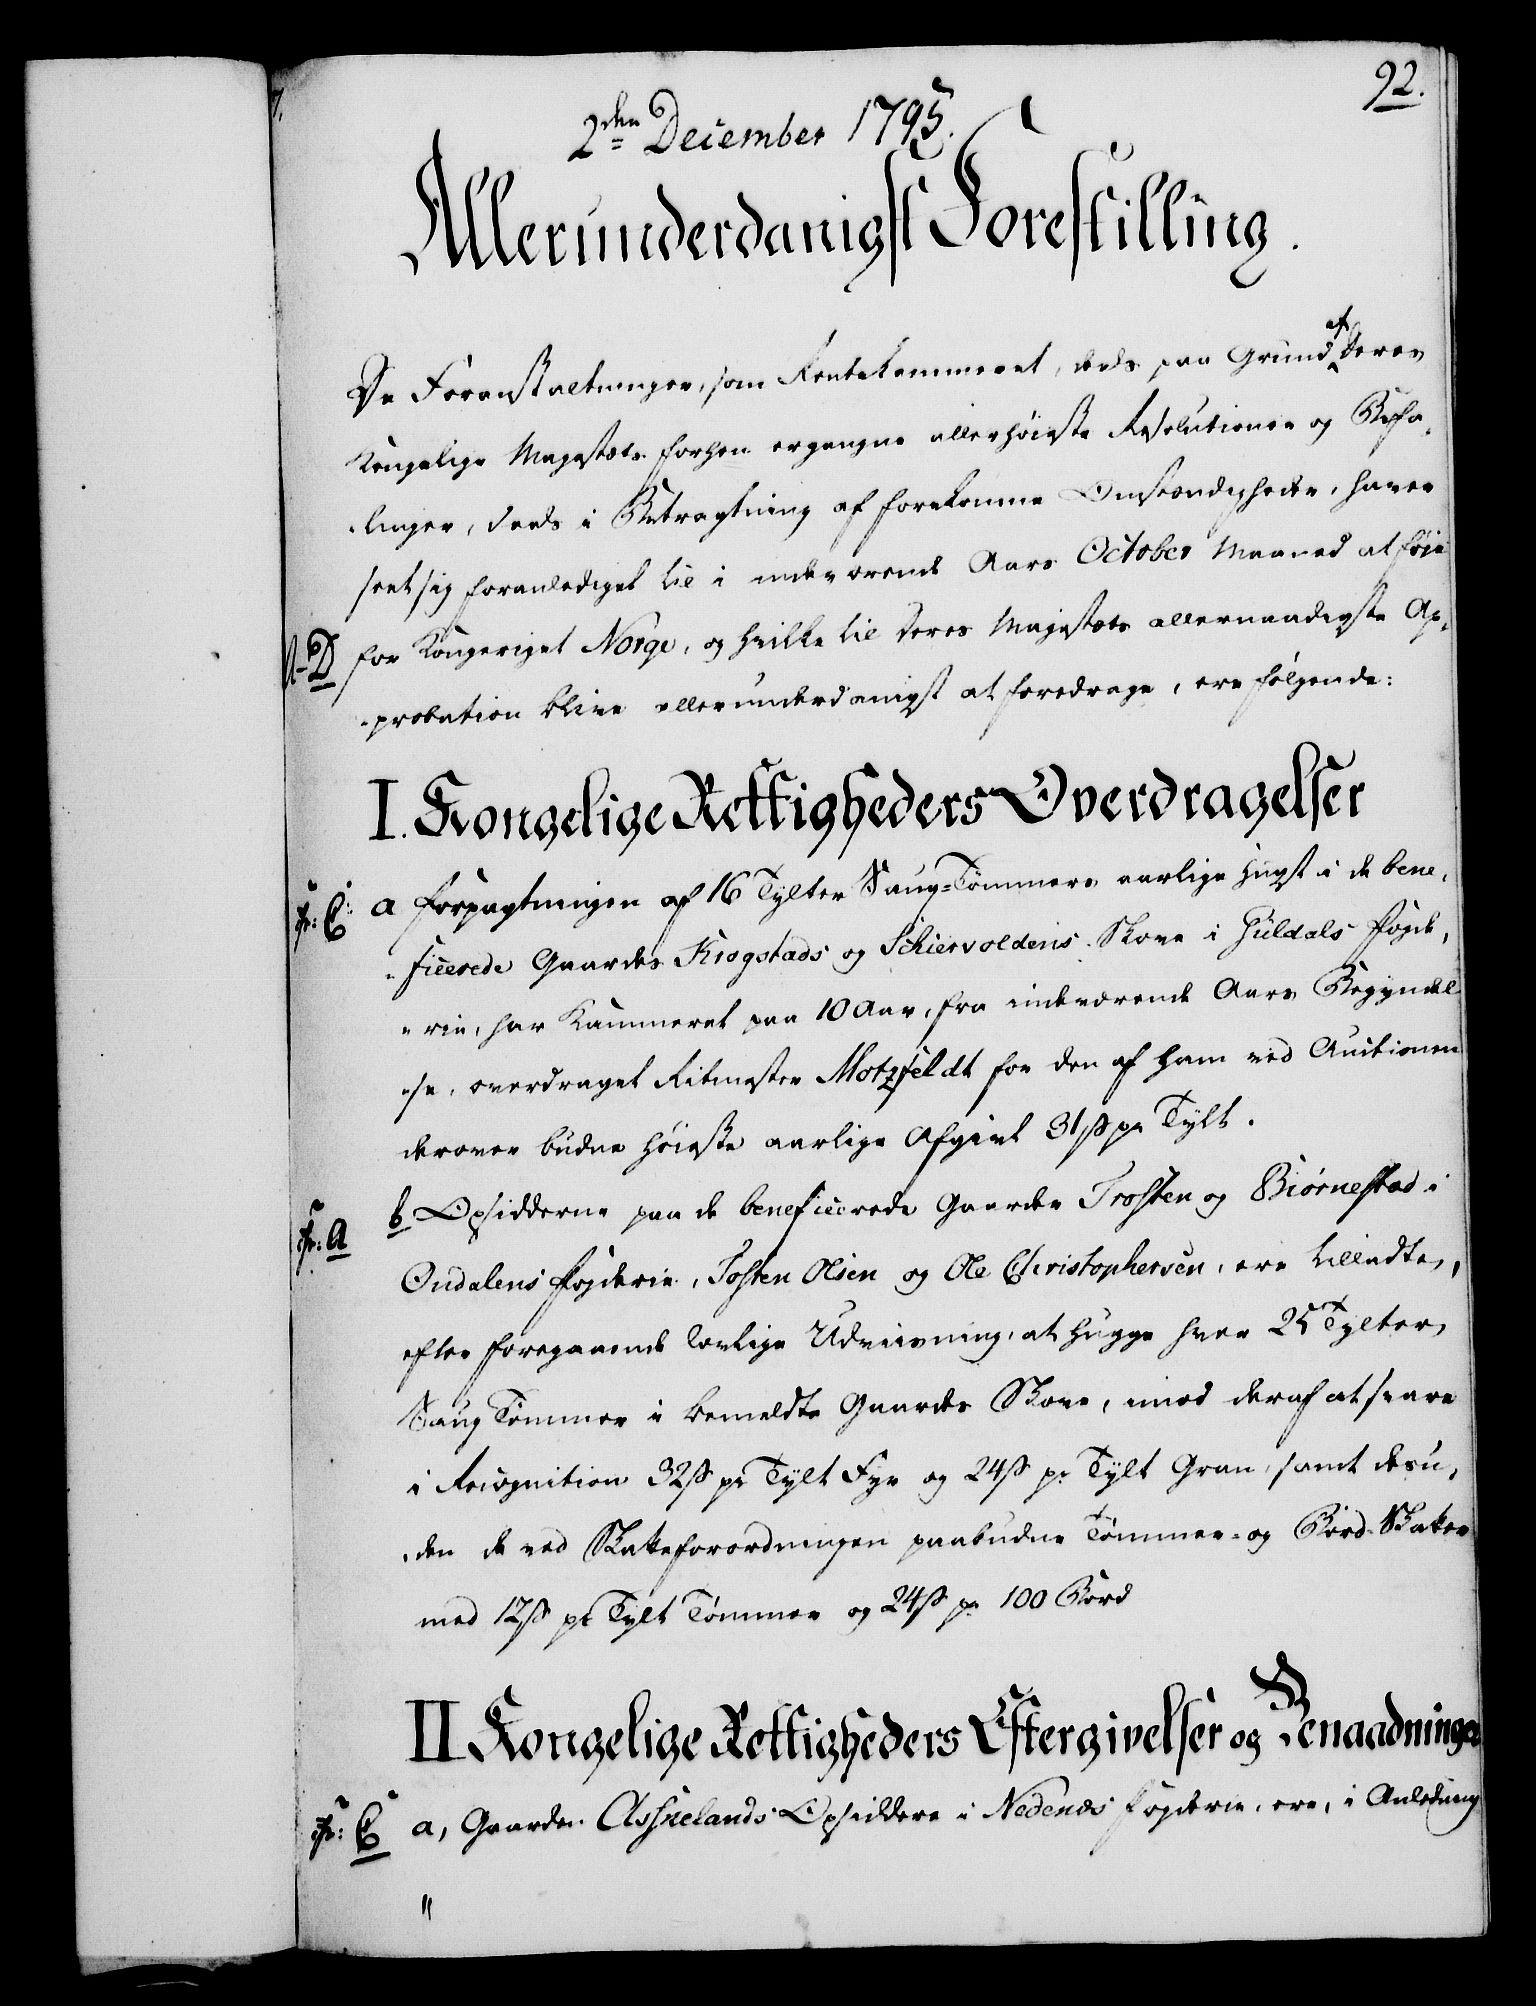 92.
2den December 1795.
Allerunderdanigst Forestilling.
De Foranstaltninger, som Rentekammeret, deels paa Grund af Deres
Kongelige Majestæts forhen ergangne allerhøieste Resolutioner og Befa-
-linger, deels i Betragtning af forekomne Omstændigheder, haver
seet sig foranlediget til i indeværende Aars October Maaned at føje
A-D for Kongeriget Norge, og hvilke til Deres Majestæts allernaadigste Ap-
-probation blive allerunderdanigst at foredrage, ere følgende:
I. Kongelige Rettigheders Overdragelser
a Forpagtningen af 16 Tylter Saug-Tømmers aarlige Hugst i de bene-
-ficerede Gaardes Krogstads og Schiervoldens Skove i Guldals Fogde-
-rie, har Kammeret paa 10 Aar, fra indeværende Aars Begyndel
-se, overdraget Ritmester Motzfeldt for den af ham ved Auctionen
derover budne høieste aarlige Afgivt 31 ß pr Tylt.
b Opsidderne paa de beneficerede Gaarder Trosten og Biørnestad i
Oudalens Fogderie, Tosten Olsen og Ole Christophersen, ere tilladte,
efter foregaaende lovlige Udviisning, at hugge hver 25 Tylter
Saug Tømmer i bemeldte Gaardes Skove, imod deraf at svare
i Recognition 32 ß pr Tylt Fyr og 24 ß pr Tylt Gran, samt desu-
-den de ved Skatteforordningen paabudne Tømmer- og Bord-Skatter
med 12 ß pr Tylt Tømmer og 24 ß pr 100 Bord
II Kongelige Rettigheders Eftergivelser og Benaadninger
a, Gaarden Assuelands Opsiddere i Nedenæs Fogderie, ere, i Anledning